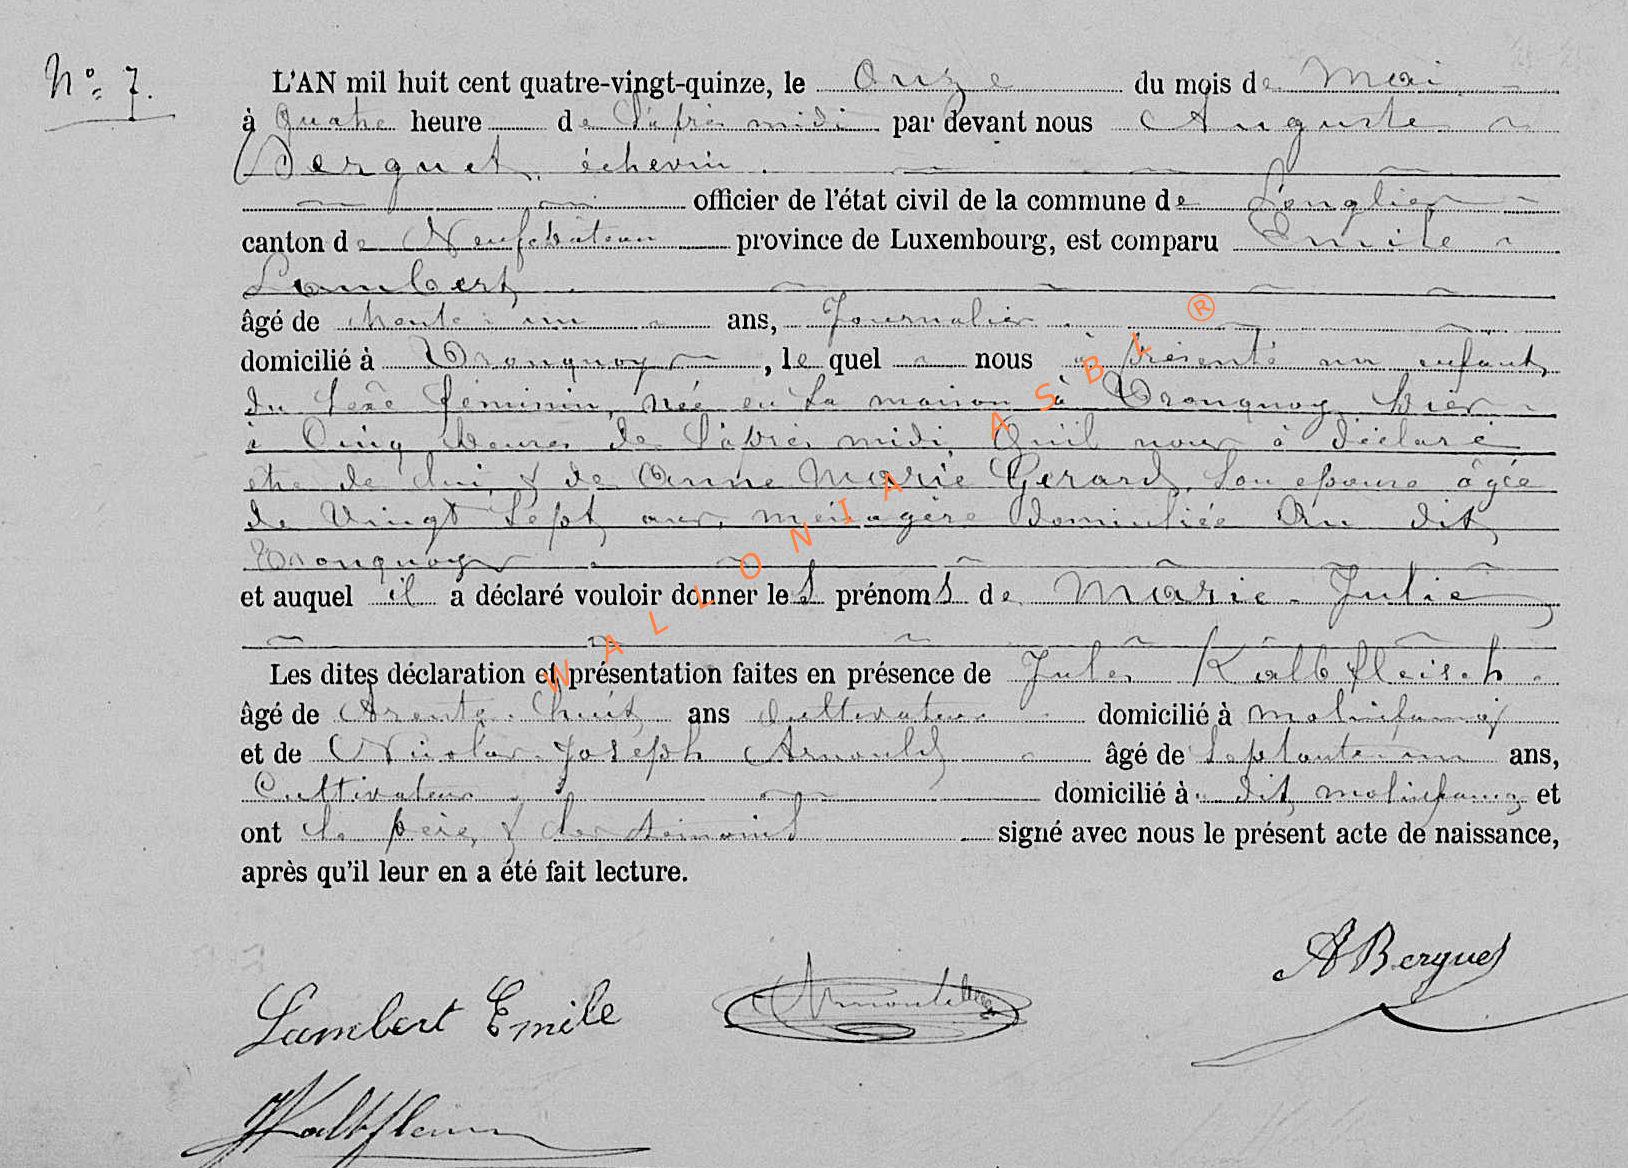 N° 7.
L'AN mil huit cent quatre-vingt-quinze, le Onze du mois de Mai
à Quatre heure de l'après midi par devant nous Auguste
Berguet, échevin.
officier de l'état civil de la commune de Longlier
canton de Neufchâteau province de Luxembourg, est comparu Emile
Lambert
âgé de trente-un ans, Journalier
domicilié à Tronquoy, le quel nous à présenté un enfant
du sexe féminin, née en sa maison à Tronquoy, hier
à Cinq heures de l'après midi Qu'il nous à déclaré
être de lui & de Anne Marie Gerard, son épouse âgée
de Vingt Sept ans, ménagère domiciliée Au dit
Tronquoy
et auquel il a déclaré vouloir donner les prénoms de Marie-Julie
Les dites déclaration et présentation faites en présence de Jules Kalbfleisch
âgé de trente-huit ans Cultivateur domicilié à molinfaing
et de Nicolas Joseph Arnould âgé de Septante-un ans,
Cultivateur domicilié à dit molinfaing et
ont le père & les témoins signé avec nous le présent acte de naissance,
après qu'il leur en a été fait lecture.
ABerguet
Lambert Emile
Arnould
Kalbfleisch
WALLONIA ASBL ®